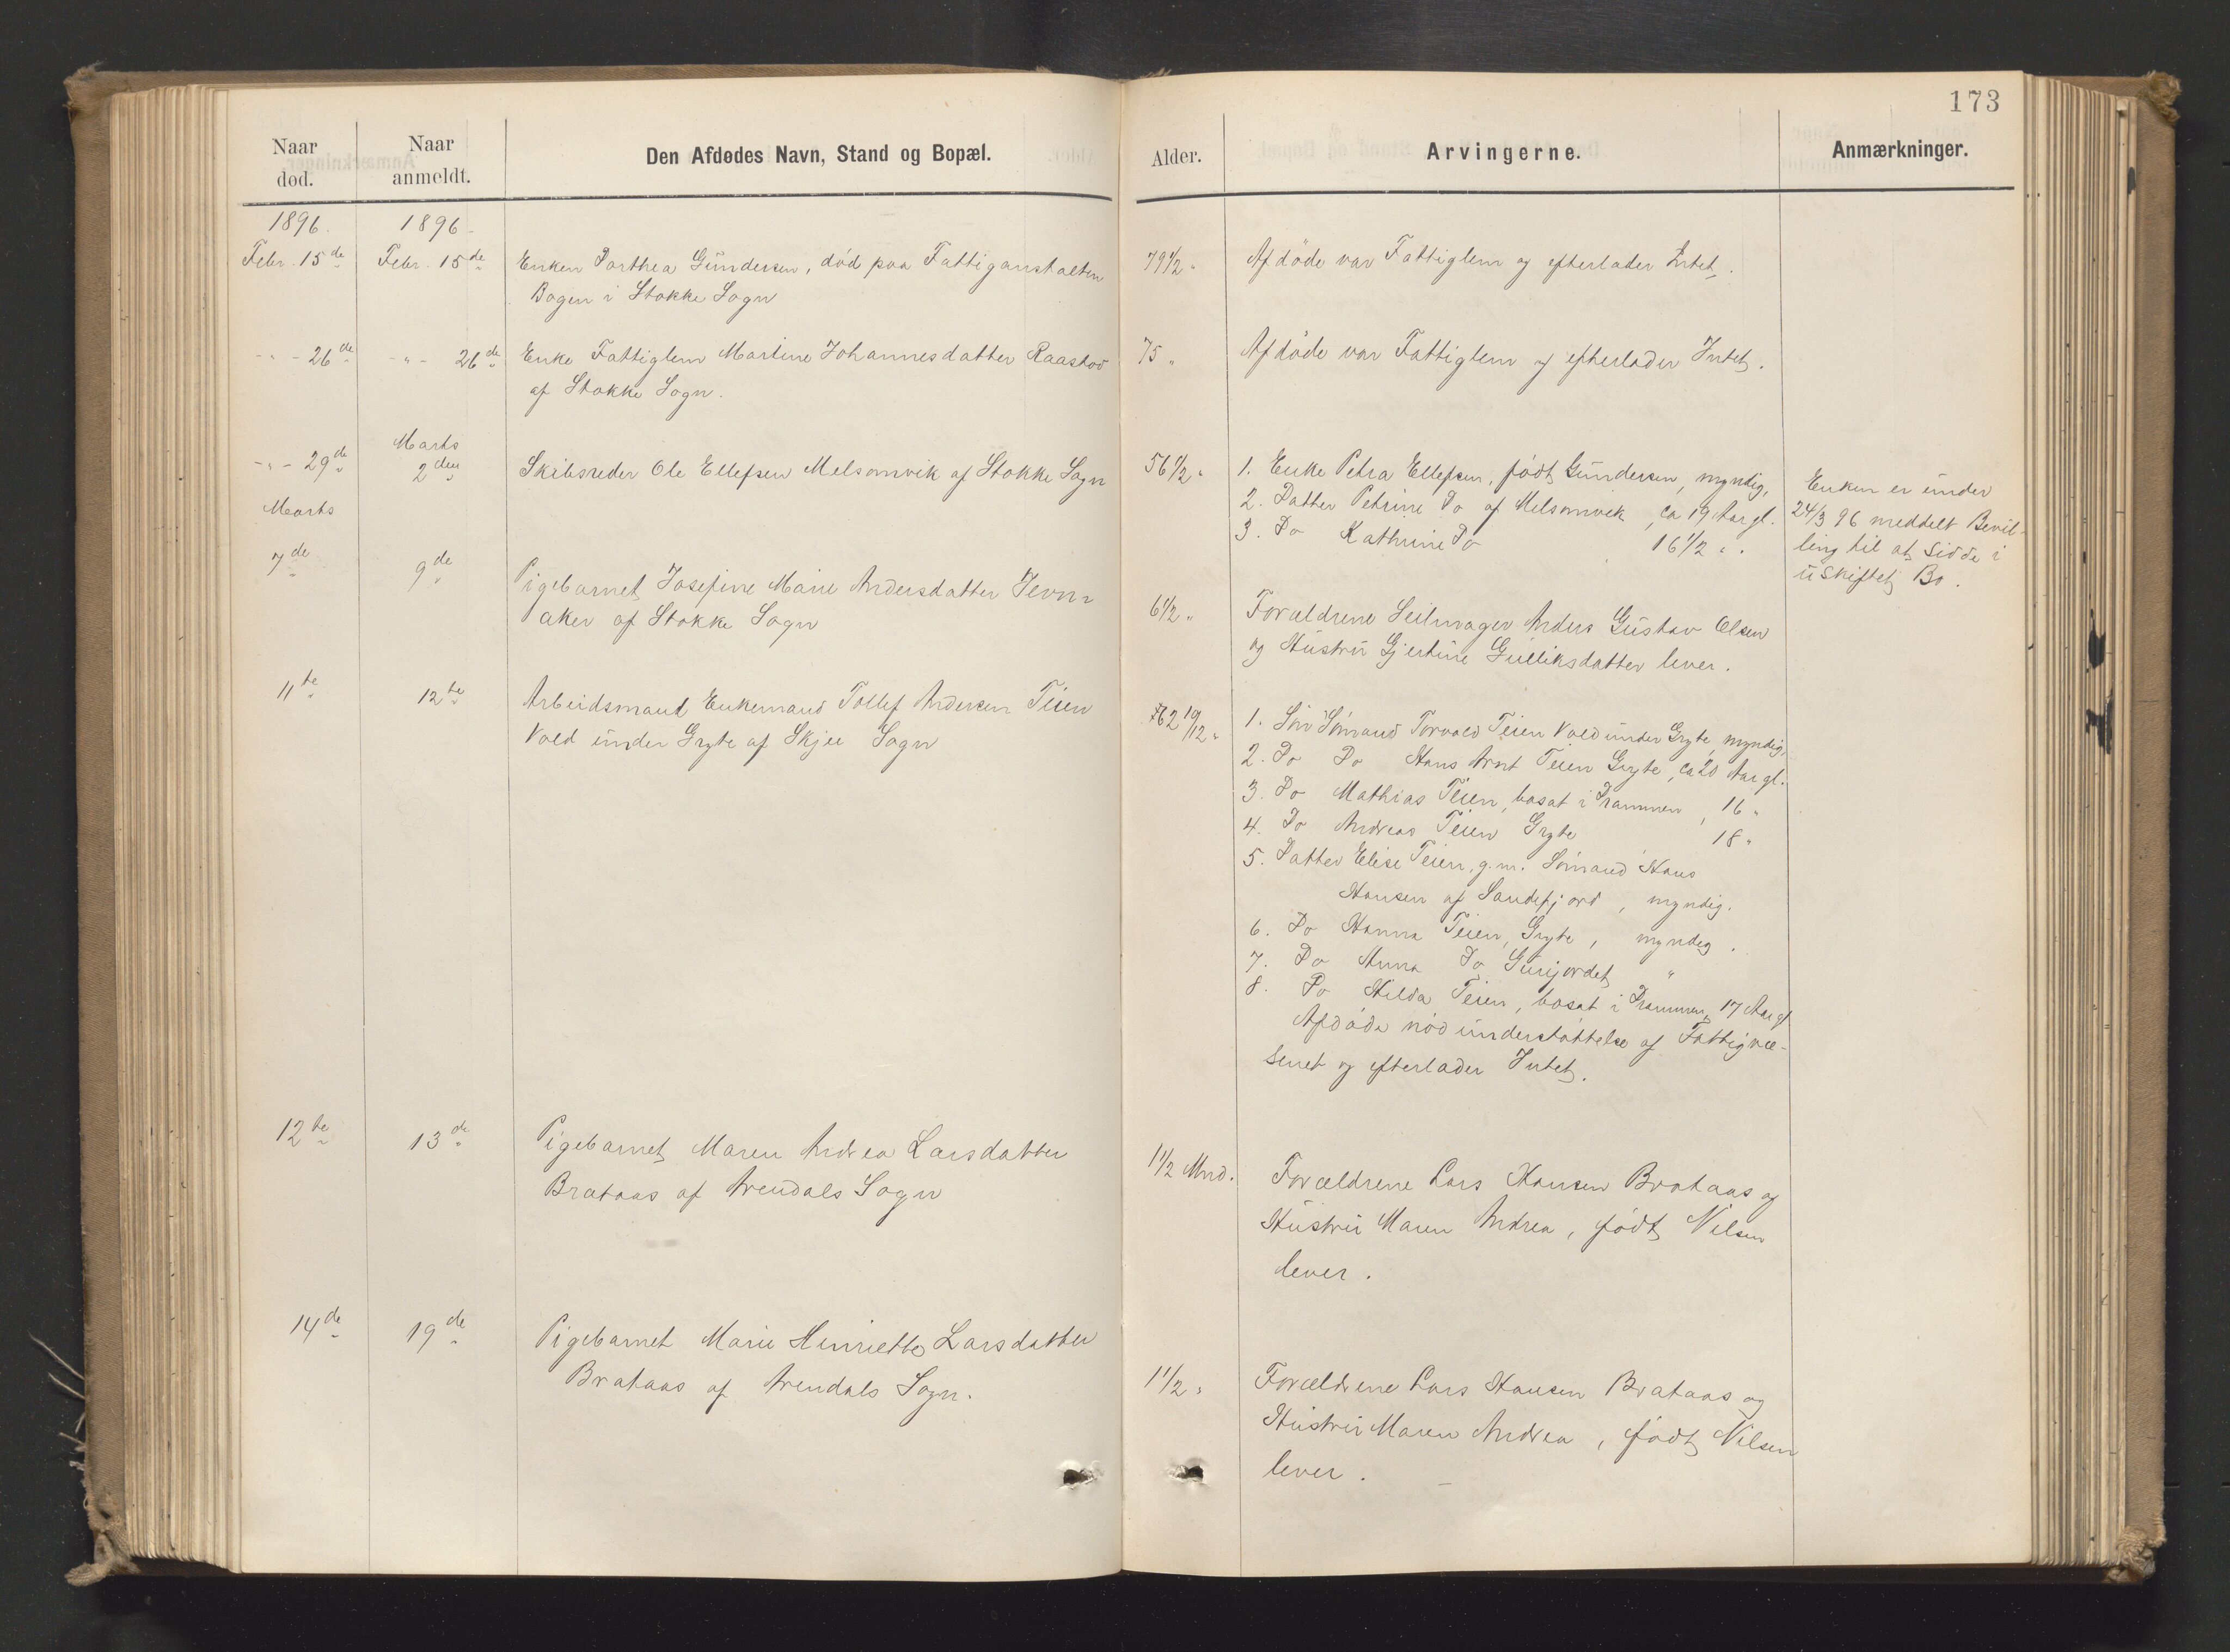 173
Naar død.
Naar anmeldt.
Den Afdødes Navn, Stand og Bopæl.
Alder.
Arvingerne.
Anmærkninger.
1896.
1896
Febr. 15de
Febr. 15de
Enken Dorthea Gundersen, død paa Fattiganstalten
Bogen i Stokke Sogn
79 1/2 "
Afdøde var Fattiglem og efterlader Intet.
- " - 26de
- " - 26de
Enke Fattiglem Martine Johannesdatter Raastad
af Stokke Sogn.
75 "
Afdøde var Fattiglem og efterlader Intet.
- " - 29de
Marts
2den
Skibsreder Ole Ellefsen Melsomvik af Stokke Sogn
56 1/2 "
1. Enke Petra Ellefsen, født Gundersen, myndig,
2. Datter Petrine Do af Melsomvik, ca 19 Aar gl.
3. Do Kathrine Do 16 1/2 " .
Enken er under
24/3 96 meddelt Bevil-
ling til at sidde i
uskiftet Bo.
Marts
7de
9de
Pigebarnet Josefine Marie Andersdatter Jevn=
aker af Stokke Sogn
6 1/2 "
Forældrene Seilmager Anders Gustav Olsen
og Hustru Gjertine Gulliksdatter lever.
11te
12te
Arbeidsmand Enkemand Tollef Andersen Teien
Vold under Gryte af Skjee Sogn
62 10/12 "
1. Søn Sømand Torvald Teien Vold under Gryte, myndig,
2. Do Do Hans Arnt Teien Gryte, ca 20 Aar gl.
3. Do Mathias Teien, bosat i Drammen, 16 "
4. Do Andreas Teien Gryte 18 "
5. Datter Elise Teien, g. m. Sømand Hans
Hansen af Sandefjord, myndig.
6. Do Hanna Teien, Gryte, myndig.
7. Do Anna Do "
8. Do Hilda Teien, bosat i Drammen, 17 Aar gl
Afdøde nød understøttelse af Fattigvæ-
senet og efterlader Intet.
12te
13de
Pigebarnet Maren Andrea Larsdatter
Brataas af Arendals Sogn
1 1/2 Mnd.
Forældrene Lars Hansen Brataas og
Hustru Maren Andrea, født Nilsen
lever.
14de
19de
Pigebarnet Marie Henriette Larsdatter
Brataas af Arendals Sogn.
1 1/2 "
Forældrene Lars Hansen Brataas og
Hustru Maren Andrea, født Nilsen
lever.